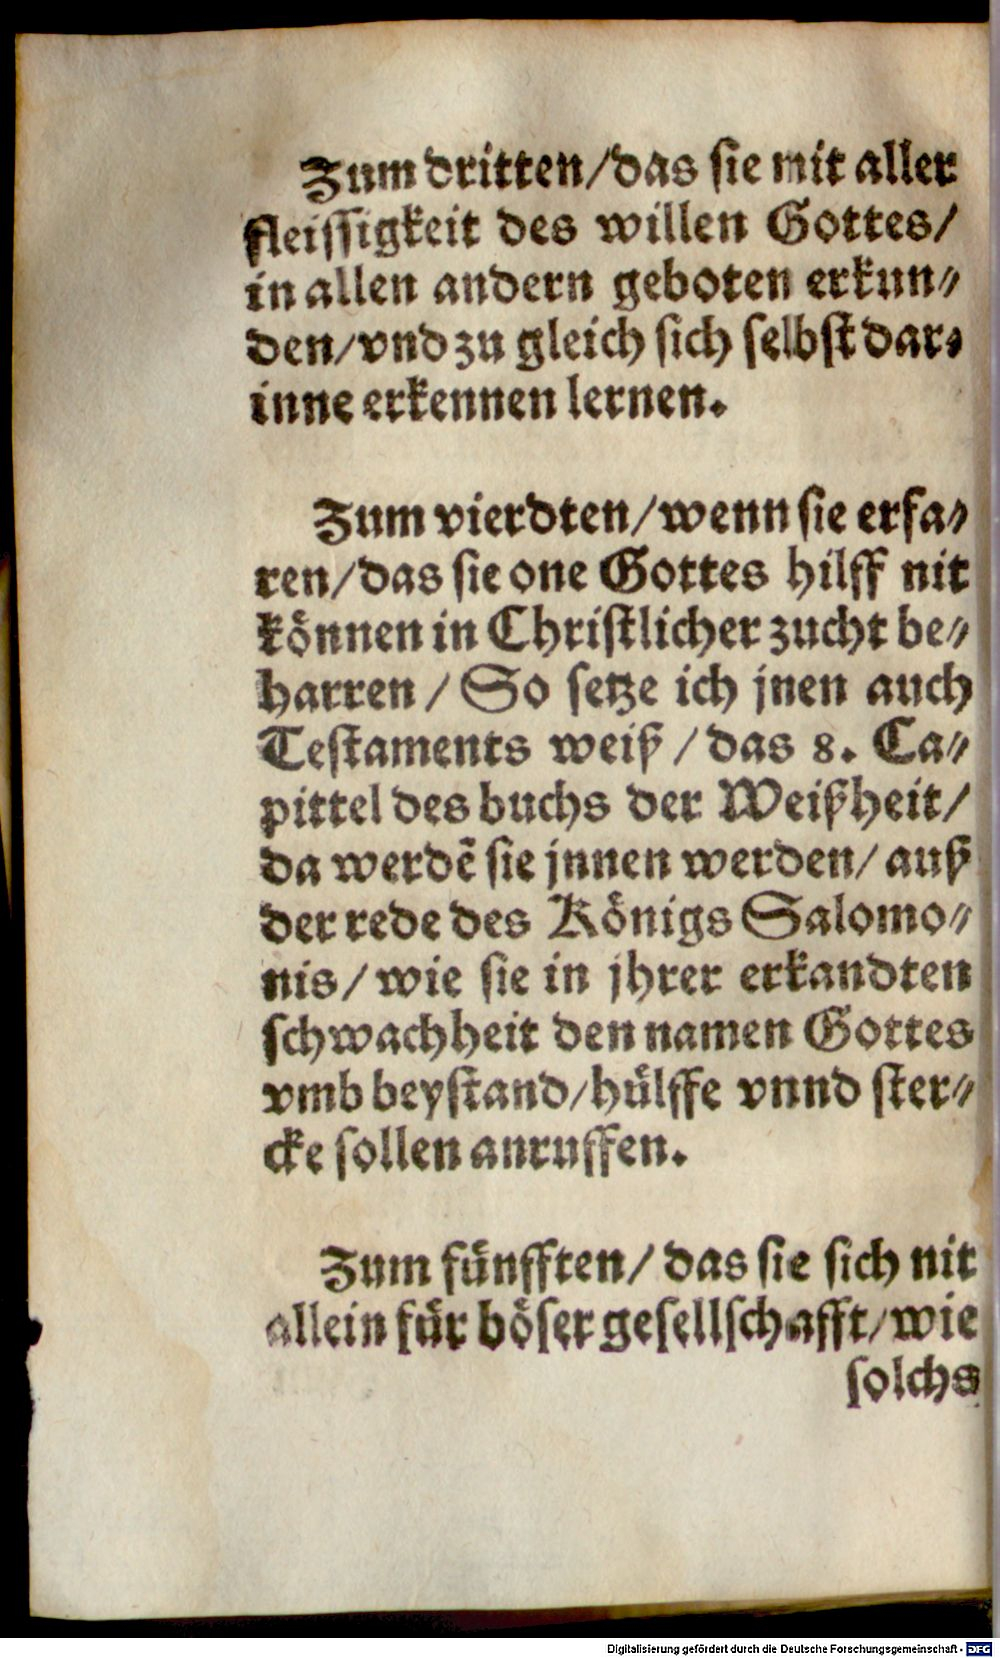 Zum dritten/das sie mit aller
fleissigkeit des willen Gottes/
in allen andern geboten erkun⸗
den/vnd zu gleich sich selbst dar⸗
inne erkennen lernen.
Zum vierdten/wenn sie erfa⸗
ren/das sie one Gottes hilff nit
koͤnnen in Christlicher zucht be⸗
harren/ So setze ich jnen auch
Testaments weiß/ das 8. Ca⸗
pittel des buchs der Weißheit/
da werdē sie jnnen werden/ auß
der rede des Koͤnigs Salomo⸗
nis/ wie sie in jhrer erkandten
schwachheit den namen Gottes
vmb beystand/huͤlffe vnnd ster⸗
cke sollen anruffen.
Zum fuͤnfften/ das sie sich nit
allein fuͤr boͤser gesellschafft/wie
solchs
Digitalisierung gefördert durch die Deutsche Forschungsgemeinschaft - DFG